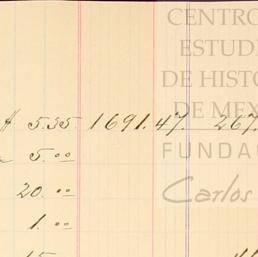 CENTRO
ESTUDI
DE HISTO
DE MEX
5.35. 1691.47. 267.
FUNDA
5.00
Carlos
20.00
1.00